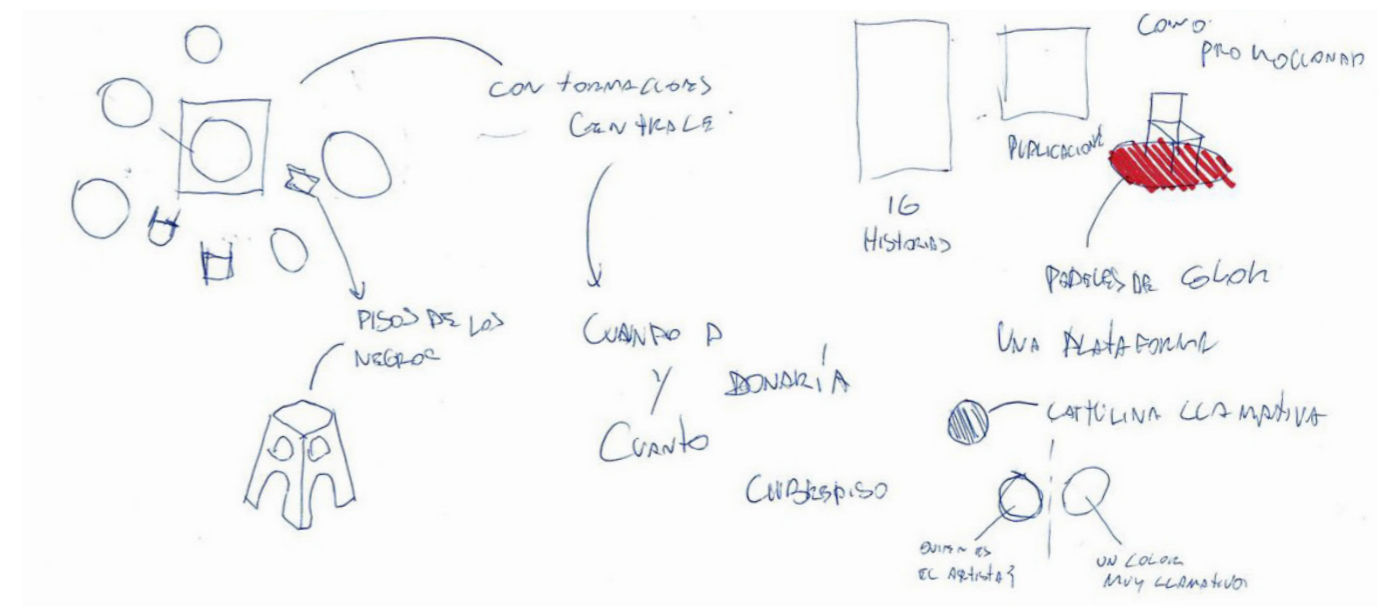 CONFORMACIONES
CENTRALE
PISOS DE LOS
NEGROS
CUANDO
Y
CUANTO
DONARÍA
CUBREPISO
IG
HISTORIAS
PUBLICACIONE
COMO
PROMOCIONAR
PAPELES DE COLOR
UNA PLATAFORMA
CARTULINA LLAMATIVA
QUIEN ES
EL ARTISTA?
UN COLOR
MUY LLAMATIVO